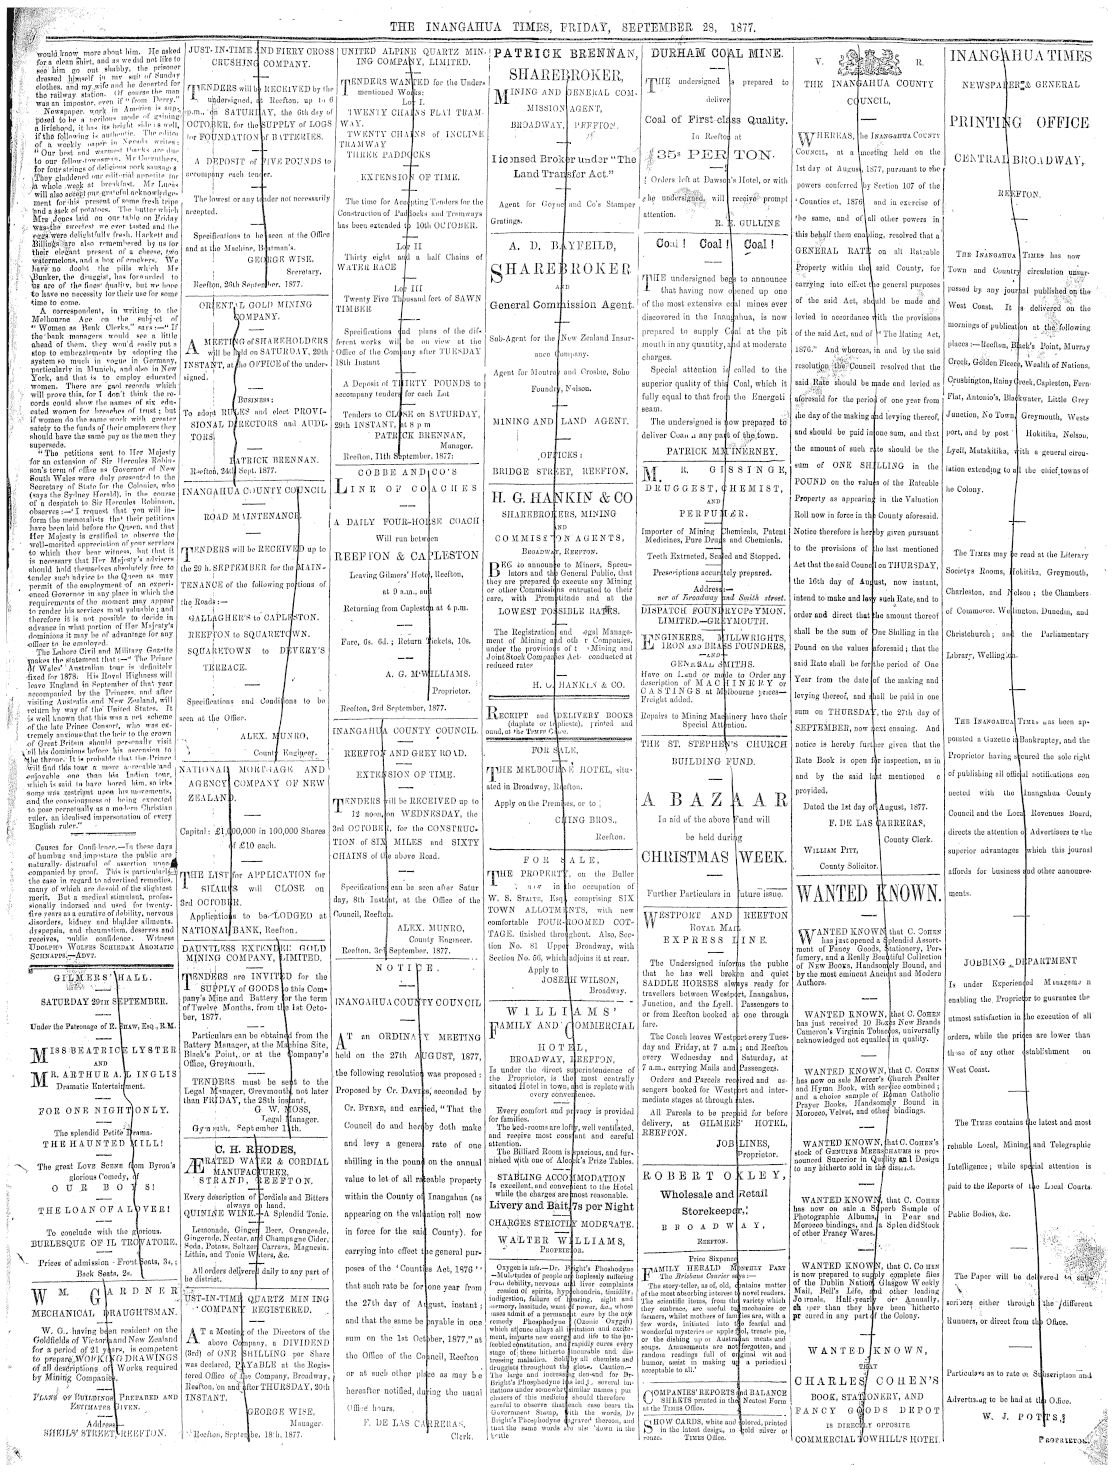 THE INANGAHUA TIMES, FRIDAY, SEPTEMBER 28, 1877.
would know more about him. He asked
for a clean shirt, and as we did not like to
see him go out shabby, the prisoner
dressed himself in my suit of Sunday
clothes, and my wife and he departed for
the railway station. Of course the man
was an impostor, even if "from Derry."
Newspaper work in America is sup-
posed to be a perilous mode of gaining
a livelihood, it has its bright side as well,
if the following is authentic. The editor
of a weekly paper in Nevada writes:
"Our best and warmest thanks are due
to our fellow-townsman, Mr Carruthers,
for four strings of delicious pork sausages
They gladdened our editorial appetite for
a whole week at breakfast. Mr Lucas
will also accept our grateful acknowledge-
ment for his present of some fresh tripe
and a sack of potatoes. The butter which
Mrs Jones laid on our table on Friday
was the sweetest we ever tasted and the
eggs were delightfully fresh. Hackett and
Billings are also remembered by us for
their elegant present of a cheese, two
watermelons, and a box of crackers. We
have no doubt the pills which Mr
Bunker, the druggist, has forwarded to
us are of the finest quality, but we hope
to have no necessity for their use for some
time to come.
A correspondent, in writing to the
Melbourne Age on the subject of
"Women as Bank Clerks," says:—"If
the bank managers would see a little
ahead of them, they would easily put a
stop to embezzlements by adopting the
system so much in vogue in Germany,
particularly in Munich, and also in New
York, and that is to employ educated
women. There are gaol records which
will prove this, for I don't think the re-
cords could show the names of six edu-
cated women for breaches of trust; but
if women do the same work with greater
safety to the funds of their employers they
should have the same pay as the men they
supersede.
"The petitions sent to Her Majesty
for an extension of Sir Hercules Robin-
son's term of office as Governor of New
South Wales were duly presented to the
Secretary of State for the Colonies, who
(says the Sydney Herald), in the course
of a despatch to Sir Hercules Robinson,
observes:—'I request that you will in-
form the memorialists that their petitions
have been laid before the Queen, and that
Her Majesty is gratified to observe the
well-merited appreciation of your services
to which they bear witness, but that it
is necessary that Her Majesty's advisers
should hold themselves absolutely free to
tender such advice to the Queen as may
permit of the employment of an experi-
enced Governor in any place in which the
requirements of the moment may appear
to render his services most valuable; and
therefore it is not possible to decide in
advance in what portion of Her Majesty's
dominions it may be of advantage for any
officer to be employed.
The Lahore Civil and Military Gazette
makes the statement that:—"The Prince
of Wales' Australian tour is definitely
fixed for 1878. His Royal Highness will
leave England in September of that year
accompanied by the Princess, and after
visiting Australia and New Zealand, will
return by way of the United States. It
is well known that this was a pet scheme
of the late Prince Consort, who was ex-
tremely anxious that the heir to the crown
of Great Britain should personally visit
all his dominions before his ascension to
the throne. It is probable that the Prince
will find this tour a more agreeable and
enjoyable one than his Indian tour,
which is said to have bored him, as eti-
some was restraint upon his movements,
and the consciousness of being expected
to pose perpetually as a modern Christian
ruler, an idealised impersonation of every
English ruler."
Causes for Confidence.—In these days
of humbug and imposture the public are
naturally distrustful of assertion unac-
companied by proof. This is particularly
the case in regard to advertised remedies,
many of which are devoid of the slightest
merit. But a medical stimulant, profes-
sionally indorsed and used for twenty-
five years as a curative of debility, nervous
disorders, kidney and bladder ailments,
dyspepsia, and rheumatism, deserves and
receives, public confidence. Witness
UDOLPHO WOLFES SCHIEDAM AROMATIC
SCHNAPPS.—ADVT.
GILMERS' HALL.
SATURDAY 29TH SEPTEMBER.
Under the Patronage of E. SHAW, Esq., R.M.
MISS BEATRICE LYSTER
AND
MR. ARTHUR A. INGLIS
Dramatic Entertainment.
FOR ONE NIGHT ONLY.
The splendid Petite Drama.
THE HAUNTED MILL!
The great LOVE SCENE from Byron's
glorious Comedy,
OUR BOYS!
THE LOAN OF A LOVER!
To conclude with the glorious.
BURLESQUE OF IL TROVATORE.
Prices of admission - Front Seats, 3s.;
Back Seats, 2s.
WM. GARDNER
MECHANICAL DRAUGHTSMAN.
W. G., having been resident on the
Goldfields of Victoria and New Zealand
for a period of 21 years, is competent
to prepare WORKING DRAWINGS
of all descriptions of Works required
by Mining Companies.
PLANS OF BUILDINGS PREPARED AND
ESTIMATES GIVEN.
Address—
SHEILS' STREET, REEFTON.
JUST-IN-TIME AND FIERY CROSS
CRUSHING COMPANY.
TENDERS will be RECEIVED by the
undersigned, at Reefton, up to 6
p.m., on SATURDAY, the 6th day of
OCTOBER, for the SUPPLY of LOGS
for FOUNDATION of BATTERIES.
A DEPOSIT of FIVE POUNDS to
accompany each tender.
The lowest or any tender not necessarily
accepted.
Specifications to be seen at the Office
and at the Machine, Boatman's.
GEORGE WISE,
Secretary.
Reefton, 26th September, 1877.
ORIENTAL GOLD MINING
COMPANY.
A MEETING of SHAREHOLDERS
will be held on SATURDAY, 29th
INSTANT, at the OFFICE of the under-
signed.
BUSINESS:
To adopt RULES and elect PROVI-
SIONAL DIRECTORS and AUDI-
TORS
PATRICK BRENNAN.
Reefton, 24th Sept. 1877.
INANGAHUA COUNTY COUNCIL
ROAD MAINTENANCE.
TENDERS will be RECEIVED up to
the 29th SEPTEMBER for the MAIN-
TENANCE of the following portions of
the Roads:—
GALLAGHER'S to CAPLESTON.
REEFTON to SQUARETOWN.
SQUARETOWN to DEVERY'S
TERRACE.
Specifications and Conditions to be
seen at the Office.
ALEX. MUNRO,
County Engineer.
NATIONAL MORTGAGE AND
AGENCY COMPANY OF NEW
ZEALAND.
Capital: £1,000,000 in 100,000 Shares
of £10 each.
THE LIST for APPLICATION for
SHARES will CLOSE on
3rd OCTOBER.
Applications to be LODGED at
NATIONAL BANK, Reefton.
DAUNTLESS EXTENDED GOLD
MINING COMPANY, LIMITED.
TENDERS are INVITED for the
SUPPLY of GOODS to this Com-
pany's Mine and Battery for the term
of Twelve Months, from the 1st Octo-
ber, 1877.
Particulars can be obtained from the
Battery Manager, at the Machine Site,
Black's Point, or at the Company's
Office, Greymouth.
TENDERS must be sent to the
Legal Manager, Greymouth, not later
than FRIDAY, the 28th instant.
G. W. MOSS,
Legal Manager.
Greymouth, September 11th.
C. H. RHODES,
ÆRATED WATER & CORDIAL
MANUFACTURER,
STRAND, REEFTON.
Every description of Cordials and Bitters
always on hand.
QUININE WINE.—A Splendid Tonic.
Lemonade, Ginger Beer, Orangeade,
Gingerade, Nectar, and Champagne Cider,
Soda, Potass, Seltzer, Carrara, Magnesia,
Lithia, and Tonic Waters, &c.
All orders delivered daily to any part of
the district.
JUST-IN-TIME QUARTZ MINING
COMPANY REGISTERED.
AT a Meeting of the Directors of the
above Company, a DIVIDEND
(3rd) of ONE SHILLING per Share
was declared, PAYABLE at the Regis-
tered Office of the Company, Broadway,
Reefton, on and after THURSDAY, 20th
INSTANT.
GEORGE WISE,
Manager.
Reefton, September 18th, 1877.
UNITED ALPINE QUARTZ MIN-
ING COMPANY, LIMITED.
TENDERS WANTED for the Under-
mentioned Works:
LOT I.
TWENTY CHAINS FLAT TRAM-
WAY.
TWENTY CHAINS of INCLINE
TRAMWAY
THREE PADDOCKS
EXTENSION OF TIME.
The time for Accepting Tenders for the
Construction of Paddocks and Tramways
has been extended to 10th OCTOBER.
LOT II
Thirty eight and a half Chains of
WATER RACE
LOT III
Twenty Five Thousand feet of SAWN
TIMBER
Specifications and plans of the dif-
ferent works will be on view at the
Office of the Company after TUESDAY
18th Instant
A Deposit of THIRTY POUNDS to
accompany tenders for each Lot
Tenders to CLOSE on SATURDAY,
29th INSTANT, at 8 p m
PATRICK BRENNAN,
Manager.
Reefton, 11th September, 1877:
COBBE AND CO'S
LINE OF COACHES
A DAILY FOUR-HORSE COACH
Will run between
REEFTON & CAPLESTON
Leaving Gilmers' Hotel, Reefton,
at 9 a.m., and
Returning from Capleston at 4 p.m.
Fare, 6s. 6d.; Return Tickets, 10s.
A. G. M'WILLIAMS.
Proprietor.
Reefton, 3rd September, 1877.
INANGAHUA COUNTY COUNCIL.
REEFTON AND GREY ROAD.
EXTENSION OF TIME.
TENDERS will be RECEIVED up to
12 noon, on WEDNESDAY, the
3rd OCTOBER, for the CONSTRUC-
TION of SIX MILES and SIXTY
CHAINS of the above Road.
Specifications can be seen after Satur
day, 8th Instant, at the Office of the
Council, Reefton.
ALEX. MUNRO,
County Engineer.
Reefton. 3rd September, 1877.
NOTICE.
INANGAHUA COUNTY COUNCIL
AT an ORDINARY MEETING
held on the 27th AUGUST, 1877,
the following resolution was proposed:
Proposed by Cr. DAVIES, seconded by
Cr. BYRNE, and carried, "That the
Council do and hereby doth make
and levy a general rate of one
shilling in the pound on the annual
value to lot of all rateable property
within the County of Inangahua (as
appearing on the valuation roll now
in force for the said County). for
carrying into effect the general pur-
poses of the 'Counties Act, 1876'"
that such rate be for one year from
the 27th day of August, instant;
and that the same be payable in one
sum on the 1st October, 1877," as
the Office of the Council, Reefton
or at such other place as may be
hereafter notified, during the usual
Office hours.
F. DE LAS CARRERAS,
Clerk.
PATRICK BRENNAN,
SHAREBROKER,
MINING AND GENERAL COM-
MISSION AGENT,
BROADWAY, REEFTON.
Licensed Broker under "The
Land Transfer Act."
Agent for Goyne and Co's Stamper
Gratings.
A. D. BAYFEILD,
SHAREBROKER
AND
General Commission Agent.
Sub-Agent for the New Zealand Insur-
ance Company.
Agent for Moutray and Crosbie, Soho
Foundry, Nelson.
MINING AND LAND AGENT.
OFFICES:
BRIDGE STREET, REEFTON.
H. G. HANKIN & CO
SHAREBROKERS, MINING
AND
COMMISSION AGENTS,
BROADWAY, REEFTON.
BEG to announce to Miners, Specu-
lators and the General Public, that
they are prepared to execute any Mining
or other Commissions entrusted to their
care, with Promptitude and at the
LOWEST POSSIBLE RATES.
The Registration and Legal Manage-
ment of Mining and other Companies,
under the provisions of the Mining and
Joint Stock Companies Act conducted at
reduced rates
H. G. HANKIN & CO.
RECEIPT and DELIVERY BOOKS
(duplate or triplicate), printed and
bound, at the TIMES Office.
FOR SALE,
THE MELBOURNE HOTEL, situ-
ated in Broadway, Reefton.
Apply on the Premises, or to
CHING BROS.,
Reefton.
FOR SALE,
THE PROPERTY, on the Buller
now in the occupation of
W. S. STAITE, Esq., comprising SIX
TOWN ALLOTMENTS, with new
comfortable FOUR-ROOMED COT-
TAGE. finished throughout. Also, Sec-
tion No. 81 Upper Broadway, with
Section No. 56, which adjoins it at rear.
Apply to
JOSEPH WILSON,
Broadway.
WILLIAMS'
FAMILY AND COMMERCIAL
HOTEL,
BROADWAY, REEFTON.
Is under the direct superintendence of
the Proprietor, is the most centrally
situated Hotel in town, and is replete with
every convenience.
Every comfort and privacy is provided
for families.
The bed-rooms are lofty, well ventilated,
and receive most constant and careful
attention.
The Billiard Room is spacious, and fur-
nished with one of Alcock's Prize Tables.
STABLING ACCOMMODATION
Is excellent, and convenient to the Hotel
while the charges are most reasonable.
Livery and Bait, 7s per Night
CHARGES STRICTLY MODERATE.
WALTER WILLIAMS,
PROPRIETOR.
Oxygen is life.—Dr. Bright's Phosphodyne
—Multitudes of people are hoplessly suffering
from debility, nervous and liver complaints
ression of spirits, hypochondria, timidity,
indigestion, failure of hearing, sight and
memory, lassitude, want of power, &c., whose
cases admit of a permanent cure by the new
remedy Phosphodyne (Ozonic Oxygen)
which at once allays all irritation and excite-
ment, imparts new energy and life to the en-
feebled constitution, and rapidly cures every
stage of these hitherto incurable and dis-
tressing maladies. Sold by all chemists and
druggists throughout the globe. Caution.—
The large and increasing demand for Dr.
Bright's Phosphodyne has led to several imi-
tations under somewhat similar names; pur
chasers of this medicine should therefore
careful to observe that each case bears the
Government Stamp, with the words, Dr
Bright's Phosphodyne engraved thereon, and
that the same words are also blown in the
bottle
DURHAM COAL MINE.
THE undersigned is prepared to
deliver
Coal of First-class Quality.
In Reefton at
35s PER TON.
Orders left at Dawson's Hotel, or with
the undersigned, will receive prompt
attention.
R. E. GULLINE
Coal! Coal! Coal!
THE undersigned begs to announce
that having now opened up one
of the most extensive coal mines ever
discovered in the Inangahua, is now
prepared to supply Coal at the pit
mouth in any quantity, and at moderate
charges.
Special attention is called to the
superior quality of this Coal, which it
fully equal to that from the Energeti
seam.
The undersigned is now prepared to
deliver Coal in any part of the town.
PATRICK M'INERNEY.
M. R. GISSINGE,
DRUGGEST, CHEMIST,
AND
PERFUMER.
Importer of Mining Chemicals, Patent
Medicines, Pure Drugs and Chemicals.
Teeth Extracted, Scaled and Stopped.
Prescriptions accurately prepared.
Address:—
Corner of Broadway and Smith street.
DISPATCH FOUNDRY COMPANY.
LIMITED.—GREYMOUTH.
ENGINEERS, MILLWRIGHTS,
IRON AND BRASS FOUNDERS,
—AND—
GENERAL SMITHS.
Have on Land or made to Order any
description of MACHINERY or
CASTINGS at Melbourne prices—
Freight added.
Repairs to Mining Machinery have their
Special Attention.
THE ST. STEPHEN'S CHURCH
BUILDING FUND.
A BAZAAR
In aid of the above Fund will
be held during
CHRISTMAS WEEK.
Further Particulars in future issue.
WESTPORT AND REEFTON
ROYAL MAIL
EXPRESS LINE.
The Undersigned informs the public
that he has well broken and quiet
SADDLE HORSES always ready for
travellers between Westport, Inangahua,
Junction, and the Lyell. Passengers to
or from Reefton booked at one through
fare.
The Coach leaves Westport every Tues-
day and Friday, at 7 a.m.; and Reefton
every Wednesday and Saturday, at
7 a.m., carrying Mails and Passengers.
Orders and Parcels received and as-
sengers booked for Westport and inter-
mediate stages at through rates.
All Parcels to be prepaid for before
delivery, at GILMERS' HOTEL,
REEFTON.
JOB LINES,
Proprietor.
ROBERT OXLEY,
Wholesale and Retail
Storekeeper,
BROADWAY,
REEFTON.
Price Sixpence
FAMILY HERALD MONTHLY PART
The Brisbane Courier says:—
The story-teller, as of, old, contains matter
of the most absorbing interest to novel readers.
The scientific items, from the variety which
they embrace, are useful to mechanics or
farmers, whilst mothers of families are, with a
few words, initiated into the fearful and
wonderful mysteries or apple fool, treacle pie,
or the dishing up of Australian meats and
soups. Amusements are not forgotten, and
random readings full of original wit and
humor, assist in making up a periodical
acceptable to all.'
COMPANIES' REPORTS and BALANCE
SHEETS printed in the Neatest Form
at the Times Office.
SHOW CARDS, white and colored, printed
in the latest design, in gold silver or
TIMES Office.
V. R.
THE INANGAHUA COUNTY
COUNCIL,
WHEREAS, the INANGAHUA COUNTY
COUNCIL, at a meeting held on the
1st day of August, 1877, pursuant to the
powers conferred by Section 107 of the
Counties ct, 1876 and in exercise of
the same, and of all other powers in
this behalf them enabling, resolved that a
GENERAL RATE on all Ratable
Property within the said County, for
carrying into effect the general purposes
of the said Act, should be made and
levied in accordance with the provisions
of the said Act, and of "The Rating Act,
1876." And whereas, in and by the said
resolution the Council resolved that the
said Rate should be made and levied as
aforesaid for the period of one year from
the day of the making and levying thereof,
and should be paid in one sum, and that
the amount of such rate should be the
sum of ONE SHILLING in the
POUND on the values of the Rateable
Property as appearing in the Valuation
Roll now in force in the County aforesaid.
Notice therefore is hereby given pursuant
to the provisions of the last mentioned
Act that the said Council on THURSDAY,
the 16th day of August, now instant,
intend to make and levy such Rate, and to
order and direct that the amount thereof
shall be the sum of One Shilling in the
Pound on the values aforesaid; that the
said Rate shall be for the period of One
Year from the date of the making and
levying thereof, and shall be paid in one
sum on THURSDAY, the 27th day of
SEPTEMBER, now next ensuing. And
notice is hereby further given that the
Rate Book is open for inspection, as in
and by the said last mentioned c
provided.
Dated the 1st day of August, 1877.
F. DE LAS CARRERAS,
County Clerk.
WILLIAM PITT,
County Solicitor.
WANTED KNOWN.
WANTED KNOWN that C. COHEN
has just opened a Splendid Assort-
ment of Fancy Goods, Stationery, Per-
fumery, and a Really Beautiful Collection
of NEW BOOKS, Handsomely Bound, and
by the most eminent Ancient and Modern
Authors.
WANTED KNOWN, that C. COHEN
has just received 10 Boxes New Brands
Cameron's Virginia Tobacco, universally
acknowledged not equalled in quality.
WANTED KNOWN, that C. COHEN
has now on sale Mercer's Church Psalter
and Hymn Book, with service combined;
and a choice sample of Roman Catholic
Prayer Books, Handsomely Bound in
Morocco, Velvet, and other bindings.
WANTED KNOWN, that C. COHEN'S
stock of GENUINE MEERSCHAUMS is pro-
nounced Superior in Quality and Design
to any hitherto sold in the district.
WANTED KNOWN, that C. COHEN
has now on sale a Superb Sample of
Photographic Albums, in Pear and
Morocco bindings, and a Splendid Stock
of other Fancy Wares.
WANTED KNOWN, that C. COHEN
is now prepared to supply complete files
of the Dublin Nation, Glasgow Weekly
Mail, Bell's Life, and other leading
Journals. Half-yearly or Annually,
cheaper than they have been hitherto
procured in any part of the Colony.
WANTED KNOWN,
THAT
CHARLES COHEN'S
BOOK, STATIONERY, AND
FANCY GOODS DEPOT
IS DIRECTLY OPPOSITE
COMMERCIAL TOWHILL'S HOTEL
INANGAHUA TIMES
NEWSPAPER & GENERAL
PRINTING OFFICE
CENTRAL BROADWAY,
REEFTON.
THE INANGAHUA TIMES has now
Town and Country circulation unsur-
passed by any journal published on the
West Coast. It is delivered on the
mornings of publication at the following
places:—Reefton, Black's Point, Murray
Creek, Golden Fleece, Wealth of Nations,
Crushington, Rainy Creek, Capleston, Fern
Flat, Antonio's, Blackwater, Little Grey
Junction, No Town, Greymouth, Wests
port, and by post Hokitika, Nelson,
Lyell, Matakitika, with a general circu-
lation extending to all the chief towns of
he Colony.
The TIMES may be read at the Literary
Societys Rooms, Hokitika, Greymouth,
Charleston, and Nelson; the Chambers
of Commerce. Wellington, Dunedin, and
Christchurch; and the Parliamentary
Library, Wellington.
THE INANGAHUA TIMES has been ap-
pointed a Gazette in Bankruptcy, and the
Proprietor having secured the sole right
of publishing all official notifications con
nected with the Inangahua County
Council and the Local Revenues Board,
directs the attention of Advertisers to the
superior advantages which this journal
affords for business and other announce-
ments.
JOBBING DEPARTMENT
Is under Experienced Management
enabling the Proprietor to guarantee the
utmost satisfaction in the execution of all
orders, while the prices are lower than
those of any other establishment on
West Coast.
The TIMES contains the latest and most
reliable Local, Mining, and Telegraphic
Intelligence; while special attention is
paid to the Reports of the Local Courts
Public Bodies, &c.
The Paper will be delivered to sub-
scribers either through the different
Runners, or direct from the Office.
Particulars as to rate of Subscription and
Advertising to be had at the Office.
W. J. POTTS,
PROPRIETOR.